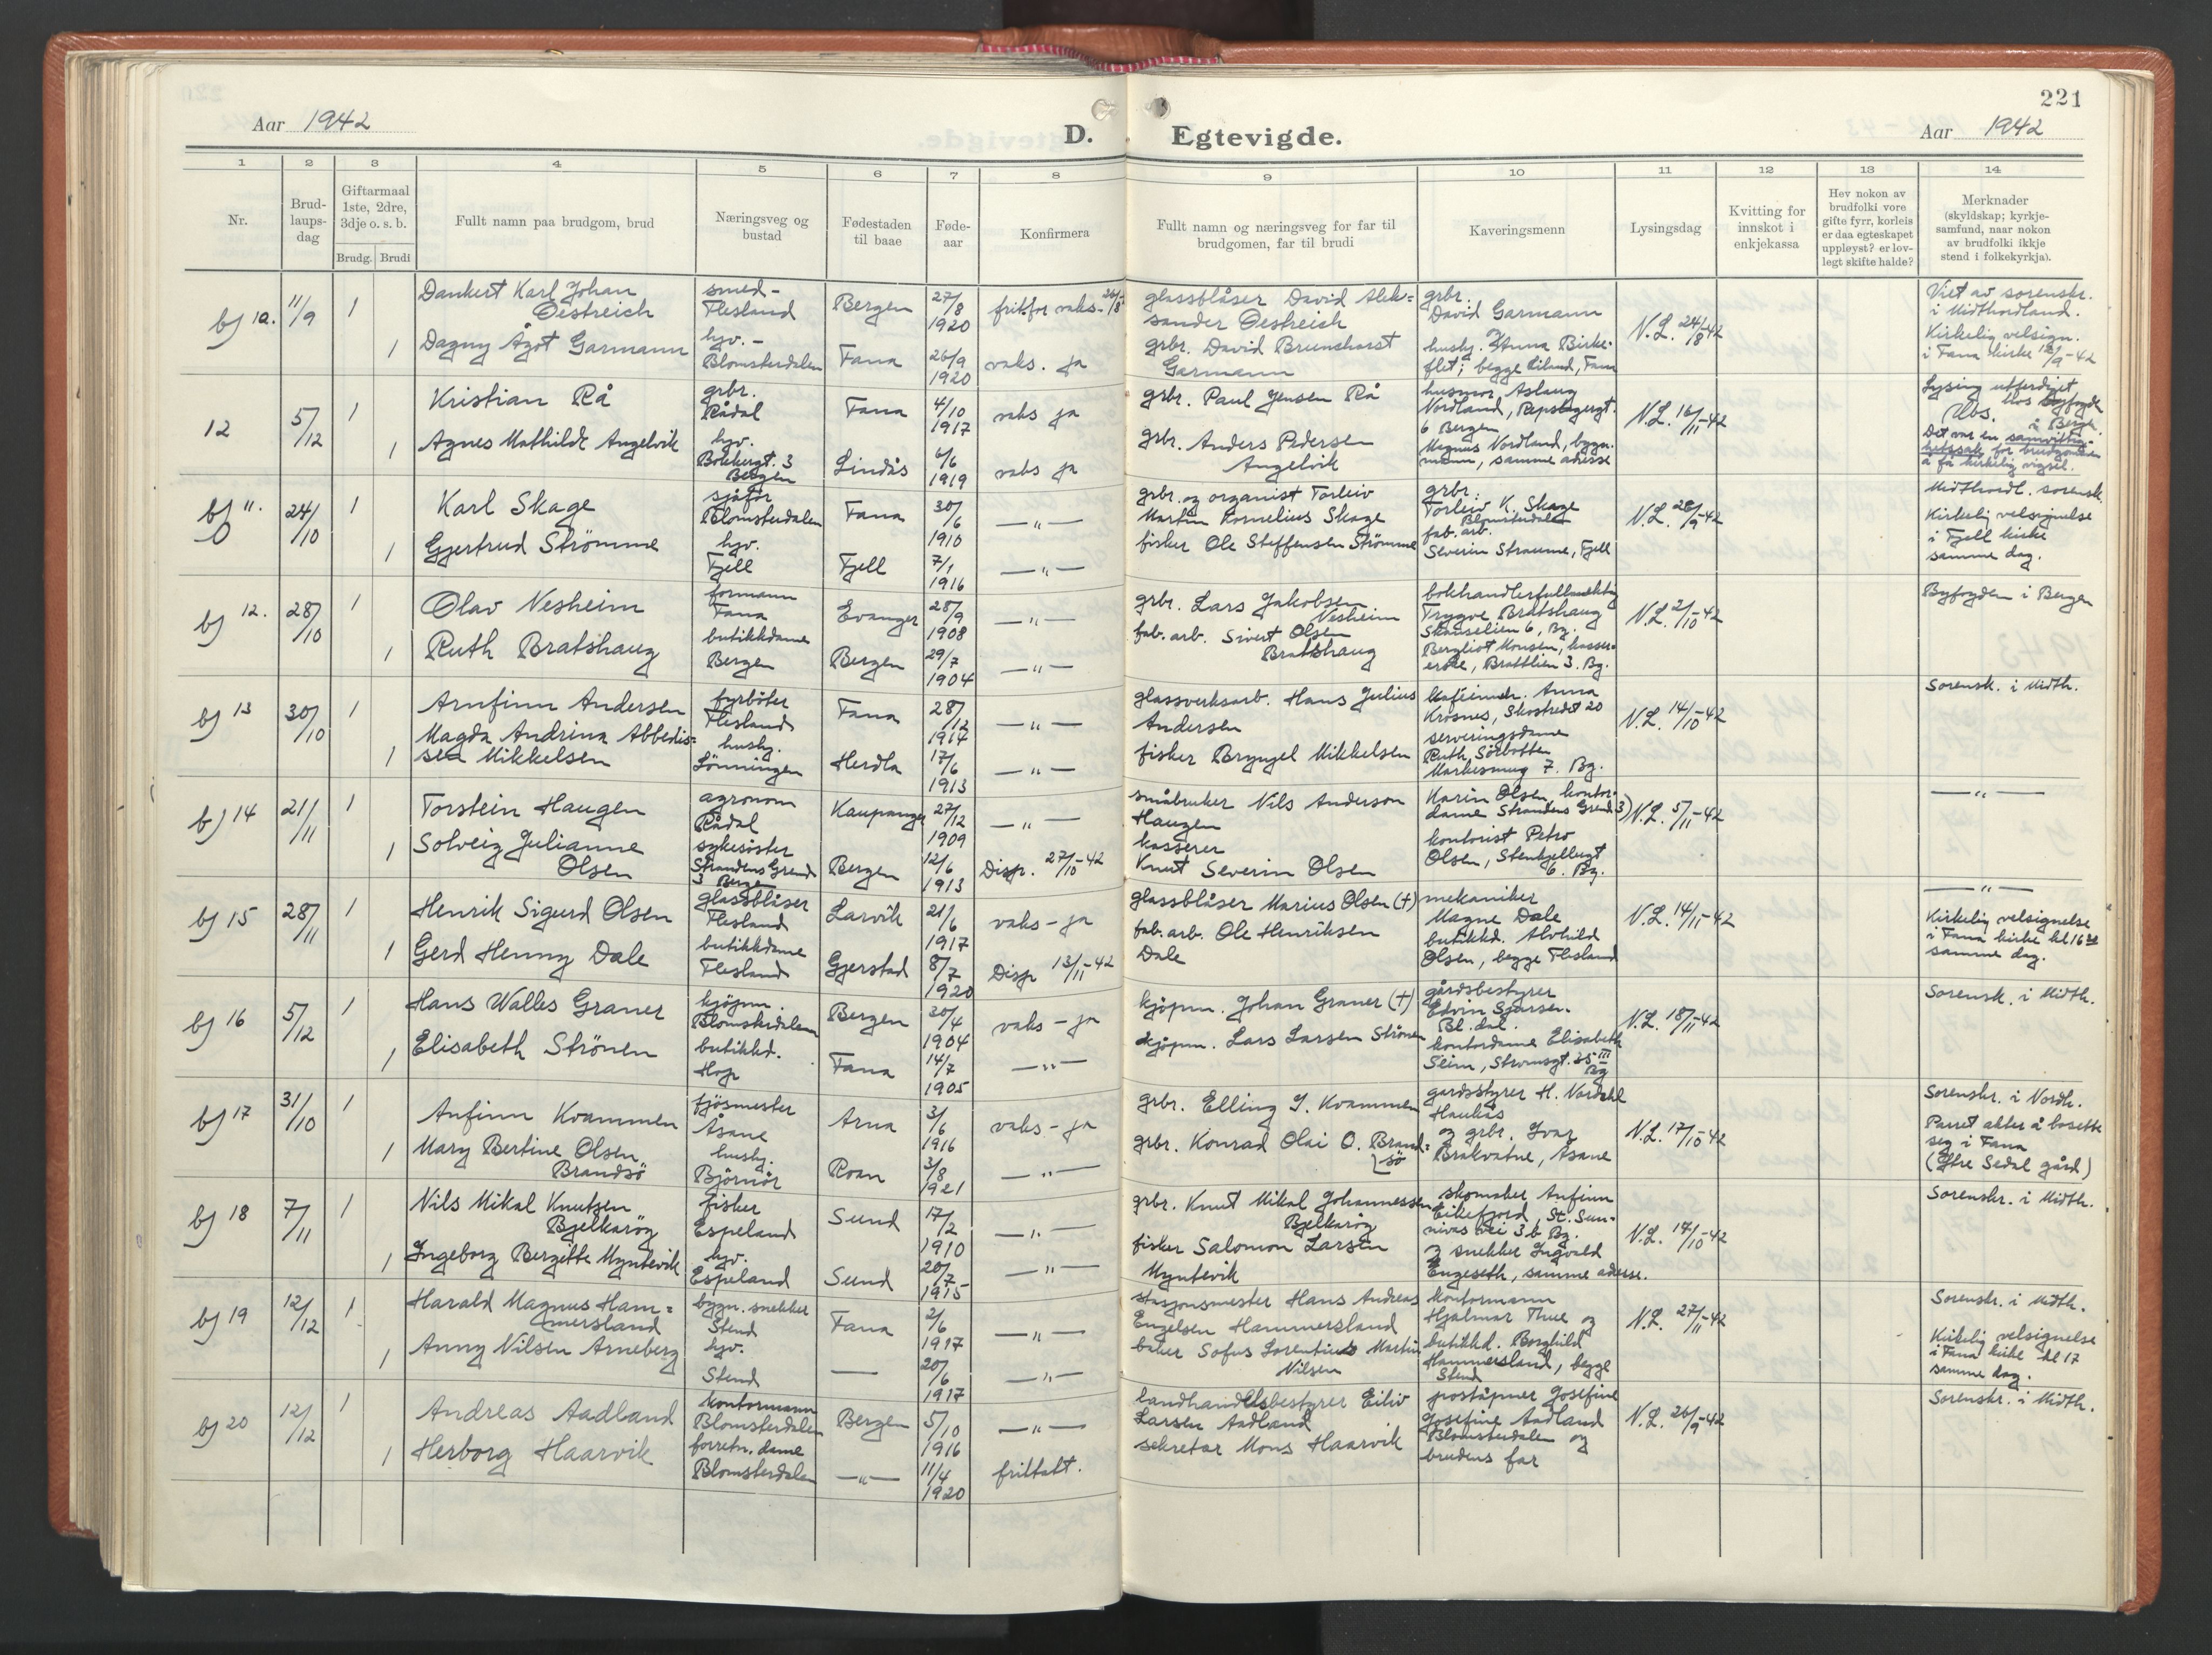 221
Aar 1942
D. Egtevigde.
Aar 1942
1 2 3 4 5 6 7 8 9 10 11 12 13 14
Nr.
Brud-
laups-
dag
Giftarmaal
1ste, 2dre,
3dje o. s. b.
Brudg. Brudi
Fullt namn paa brudgom, brud
Næringsveg og
bustad
Fødestaden
til baae
Føde-
aar
Konfirmera
Fullt namn og næringsveg for far til
brudgomen, far til brudi
Kaveringsmenn
Lysingsdag
Kvitting for
innskot i
enkjekassa
Hev nokon av
brudfolki vore
gifte fyrr, korleis
er daa egteskapet
uppløyst? er lov-
legt skifte halde?
Merknader
(skyldskap; kyrkje-
samfund, naar nokon
av brudfolki ikkje
stend i folkekyrkja).
bj 10. 11/9 1
Dankert Karl Johan
Oestreich
smed-
Flesland
Bergen
27/8
1920
fritk for vaks-
glassblåser David Alek=
sander Oestreich
grbr.
David Garmann
N.L. 24/8-42
Viet av sorenskr.
i Midthordland.
1
Dagny Ågot Garmann
hgv. -
Blomsterdalen
Fana
26/9
1920
vaks. ja
grbr. David Brunchorst
Garmann
og
husbg. Anna Birke-
flet; begge Liland, Fana
Kirkelig velsign.
i Fana kirke 12/9-42
12 5/12 1
Kristian Rå
grbr.
Rådal
Fana
4/10
1917
vaks ja
grbr. Paul Jensen Rå
husmor Aslaug
Nordland, Repslagergt.
6 Bergen
N.L. 16/11-42
Lysing utferdiget
hos Byfogden
Obs. i Bergen.
1
Agnes Mathilde Angelvik
hgv.
Bøkkergt. 3
Bergen
Lindås
6/6
1919
vaks ja
grbr. Anders Pedersen
Angelvik
Magnus Nordland, bygn.
mann, samme adresse
Det var en samvittig-
hetssak for brudgommen
å få kirkelig vigsel.
bj 11. 24/10 1
Karl Skage
sjåfør
Blomsterdalen
Fana
30/6
1910
— " —
grbr. og organist Torleiv
Martin Kornelius Skage
grbr.
Torleiv K. Skage
Blomsterdalen
N.L. 28/9-42
Midthordl. sorensk.
1
Gjertrud Strömme
hgv.
Fjell
Fjell
7/1
1916
— " —
fisker Ole Steffensen Strömme
fab. arb.
Severin Straume, Fjell
Kirkelig velsignelse
i Fjell kirke
samme dag.
bj 12. 28/10 1
Olav Nesheim
formann
Fana
Evanger
28/9
1908
— " —
grbr. Lars Jakobsen
Nesheim
bokhandlerfullmektig
Trygve Bratshaug
Skanselien 6, Bg.
N.L. 2/10-42
Byfogden i Bergen
1
Ruth Bratshaug
butikkdame
Bergen
Bergen
29/7
1904
— " —
fab. arb. Sivert Olsen
Bratshaug
Bergliot Monsen, kasser-
erske, Brattlien 3. Bg.
bj 13 30/10 1
Arnfinn Andersen
fyrböter
Flesland
Fana
28/12
1917
— " —
glassverksarb. Hans Julius
Andersen
Kaféinneh. Anna
Krosnes, Skostredet 20
N.L. 14/10-42
Sorensk. i Midth.
1
Magda Andrina Abbedis=
sea Mikkelsen
husbg.
Lönningen
Herdla
17/6
1913
— " —
fisker Bryngel Mikkelsen
serveringsdame
Ruth Sörbotten
Markesmug 7. Bg.
bj 14 21/11 1
Torstein Haugen
agronom
Rådal
Kaupanger
27/12
1909
— " —
småbruker Nils Anderson
Haugen
Karin Olsen, kontor-
dame Strandens Grend 3)
N.L. 5/11-42
— " —
1
Solveig Julianne
Olsen
sykesöster
Strandens Grend
3 Bergen
Bergen
12/6
1913
Disp. 27/10-42
kasserer
Knut Severin Olsen
kontorist Petro
Olsen, Stenkjellergt
6. Bg.
bj 15 28/11 1
Henrik Sigurd Olsen
glassblåser
Flesland
Larvik
21/6
1917
vaks - ja
glassblåser Marius Olsen (+)
mekaniker
Magne Dale
N.L. 14/11-42
— " —
1
Gerd Henny Dale
butikkdame
Flesland
Gjerstad
8/7
1920
Disp 13/11-42
fab. arb. Ole Henriksen
Dale
butikkd. Alvhild
Olsen, begge Flesland
Kirkelig velsignelse
i Fana kirke kl 16
samme dag.
bj 16 5/12 1
Hans Walles Graner
kjöpm.
Blomsterdalen
Bergen
30/4
1904
vaks - ja
kjöpm. Johan Graner (+)
gårdsbestyrer
Edvin Sjursen.
Bl. dal.
N.L. 18/11-42
Sorensk. i Midth.
1
Elisabeth Strönen
butikkd.
Hop
Fana
14/7
1905
— " —
kjöpm. Lars Larsen Strönen
kontordame Elisabeth
Seim, Stromgt. 35 III
Bg
bj 17 31/10 1
Anfinn Kvammen
fjösmester
Åsane
Arna
3/6
1916
vaks - ja
grbr. Elling J. Kvammen
gardsstyrer H. Nordahl
Haukås
N.L. 17/10-42
Sorenskr. i Nordh.
1
Mary Bertine Olsen
Brandsö
husbg.
Björnör
Roan
3/8
1921
— " —
grbr. Konrad Olai O. Brand=
sö
og grbr. Ivar
Brakvatne, Åsane
Parret akter å bosette
seg i Fana
(Ytre Sedal gård)
bj 18 7/11 1
Nils Mikal Knutsen
Bjelkaröy
fisker
Espeland
Sund
17/2
1910
— " —
grbr. Knut Mikal Johannessen
Bjelkaröy
skomaker Anfinn
Eikefjord, St. Sun-
nivas vei 3 b Bg.
N.L. 14/10-42
Sorenskr. i Midth.
1
Ingeborg Bergitte Myntevik
hgv.
Espeland
Sund
20/7-
1915
— " —
fisker Salomon Larsen
Myntevik
og snekker Ingvald
Engeseth, samme adresse.
bj 19 12/12 1
Harald Magnus Ham=
mersland
bygn. snekker
Stend
Fana
2/6
1917
— " —
stasjonsmester Hans Andreas
Engelsen Hammersland
Kontormann
Hjalmar Thue og
N.L. 27/11-42
Sorenskr. i Midth.
1
Anny Nilsen Arneberg
hgv.
Stend
—
20/6
1917
— " —
baker Sofus Lorentius Martin
Nilsen
butikkd. Borghild
Hammersland, begge
Stend
Kirkelig velsignelse
i Fana kirke kl 17
samme dag.
bj 20 12/12 1
Andreas Aadland
Kontormann
Blomsterdalen
Bergen
5/10
1916
— " —
landhandelsbestyrer Eiliv
Larsen Aadland
poståpner Josefine
Josefine Aadland
Blomsterdalen og
N.L. 26/9-42
Sorenskr. i Midth.
1
Herborg Haarvik
forretn. dame
Blomsterdalen
— " —
11/4
1920
fritatt.
sekretær Mons Haarvik
brudens far